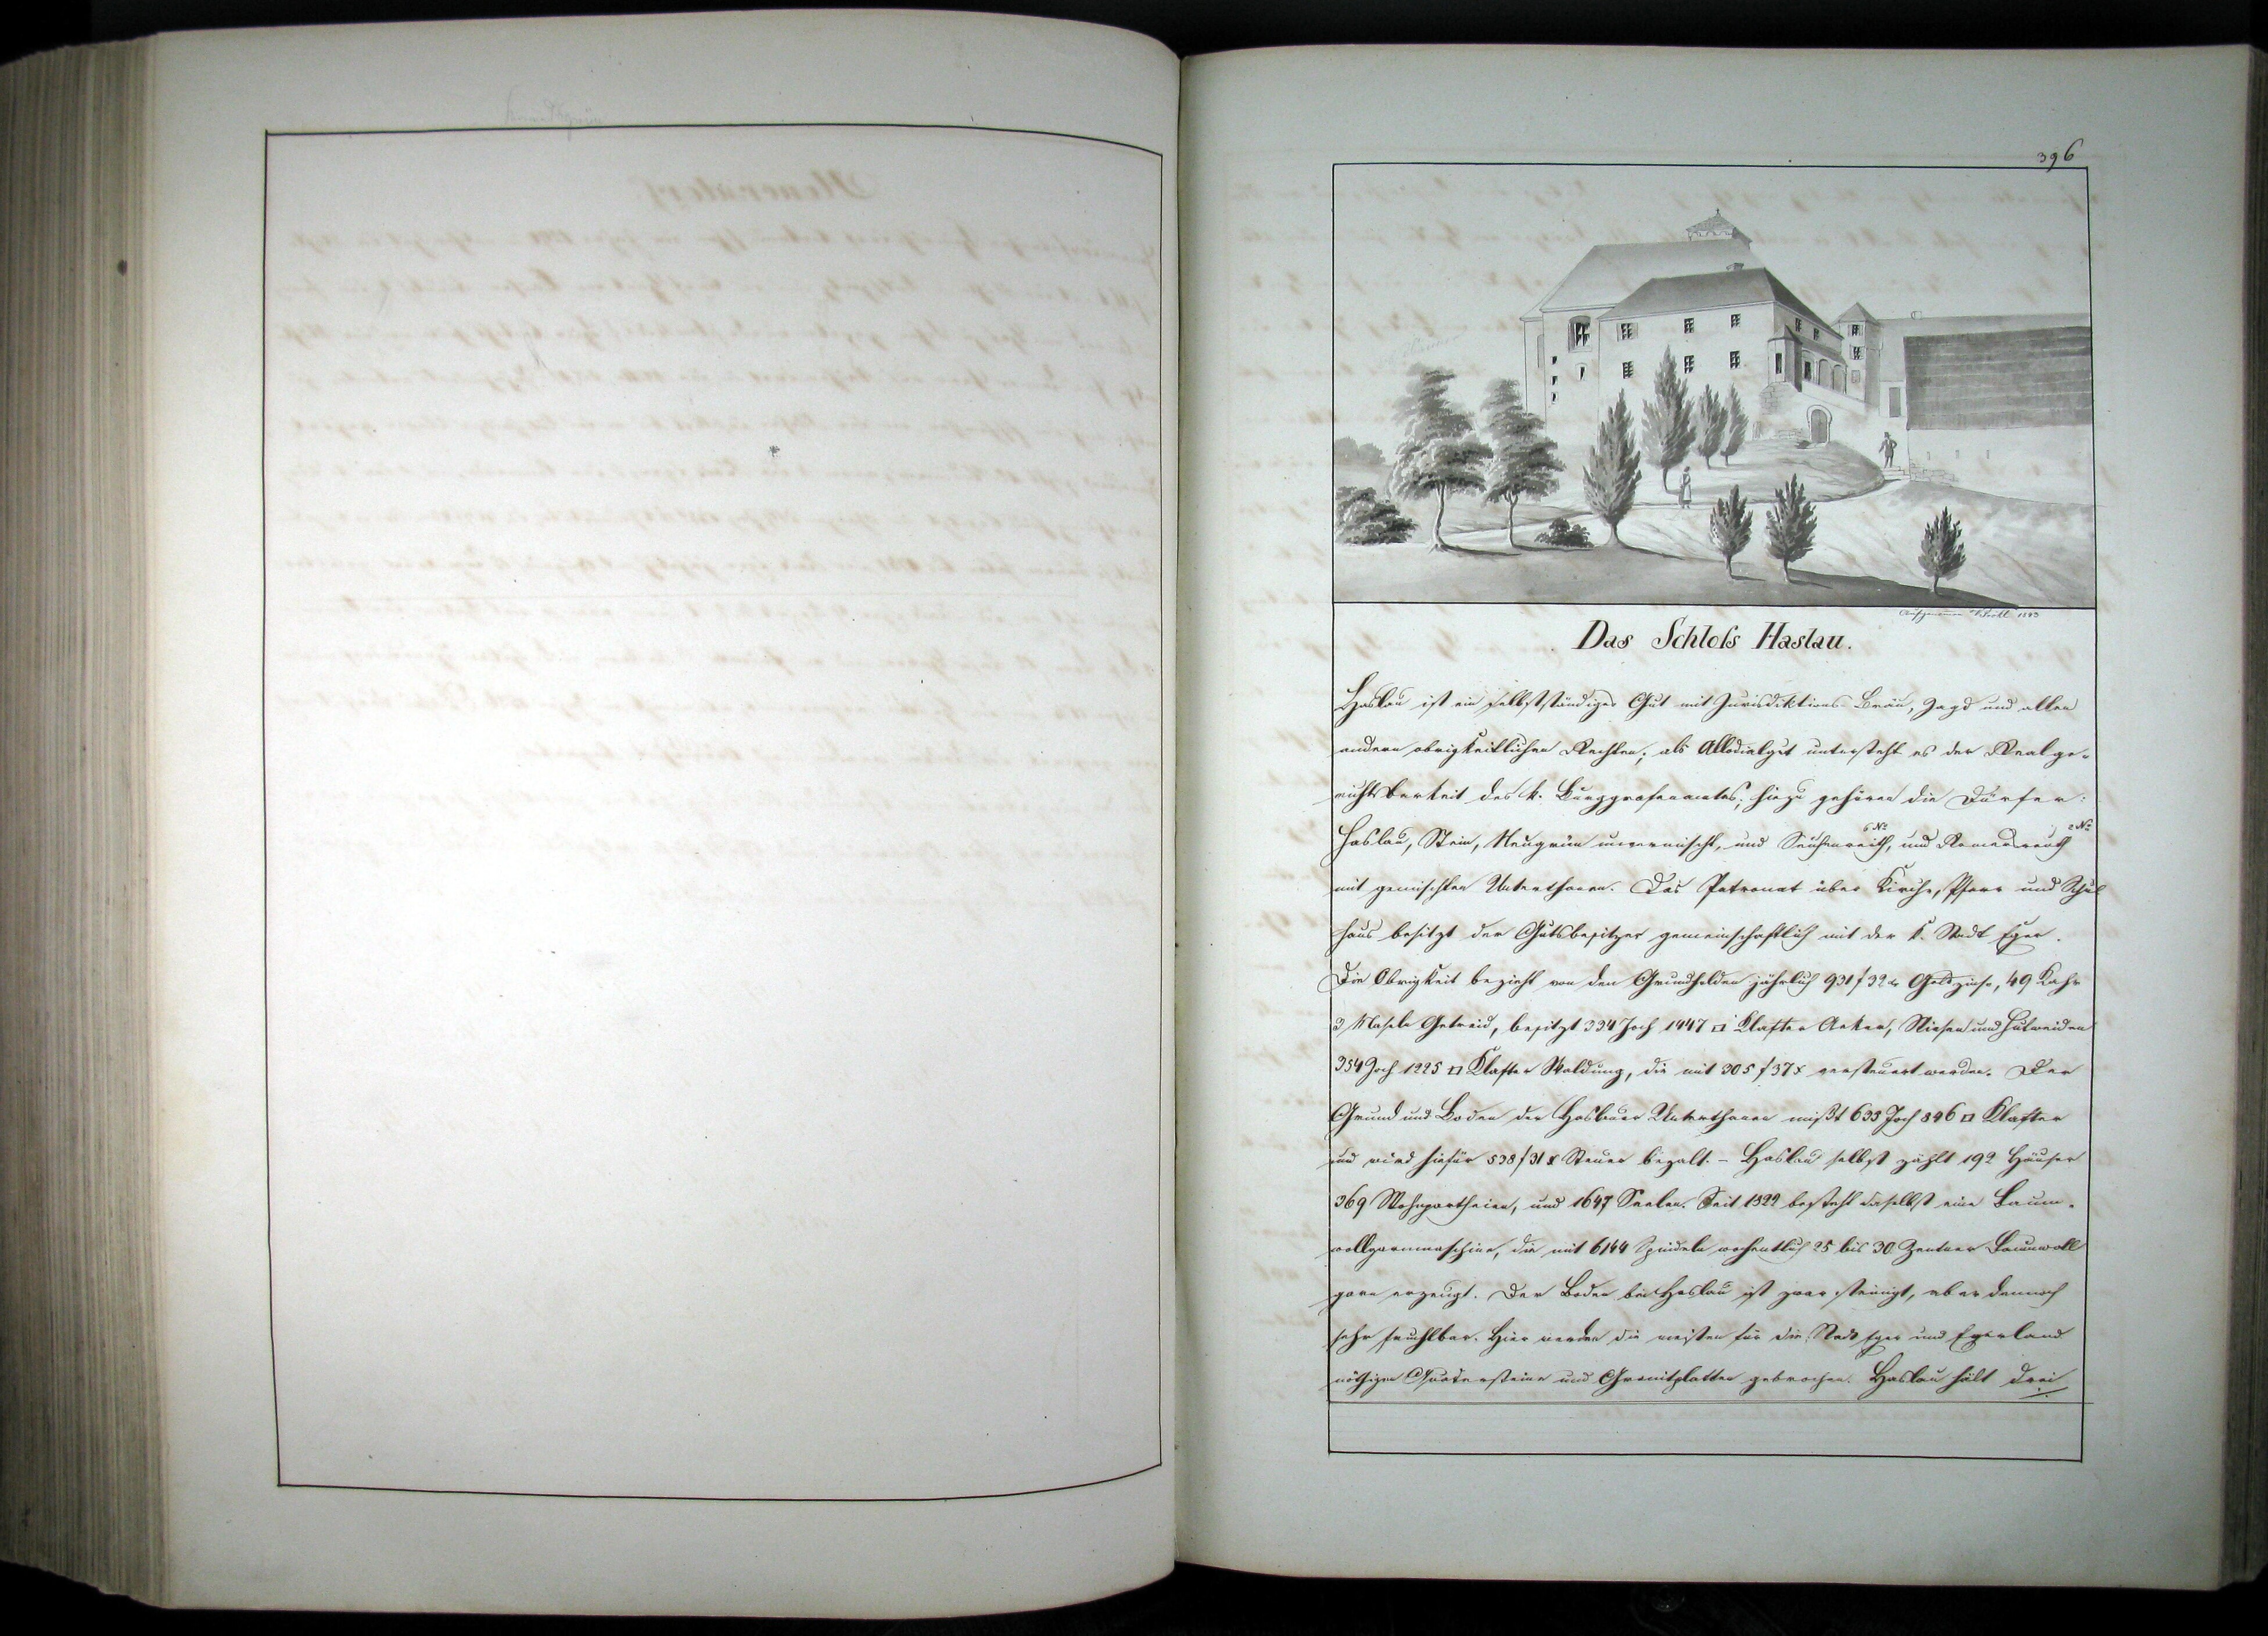 396
Das Schloß Haslau.
Haslau ist ein selbstständiges Gut mit Jurisdiktions Bräu, Jagd und allen
andern obrigkeitlichen Rechten; als Allodialgut untersteht es der Realge-
richtsbarkeit des k. Burggrafenamtes; hiezu gehören die Dörfer:
Haslau, Stein, Neugrün unvermischt, und Seichenreith, 6 No und Romersreuth 2 No
mit gemischten Unterthanen. Das Patronat über Kirche, Pfarr und Schul
haus besitzt der Gutsbesitzer gemeinschaftlich mit der k. Stadt Eger.
Die Obrigkeit bezieht von den Grundholden jährlich 931 f 32 Geldzinse, 49 Kahr
3 Masele Getreid, besitzt 334 Joch 1447 □ Klafter Aeker, Wiesen und Hutweiden
354 Joch 1225 □ Klafter Waldung, die mit 305 f 37 x versteuert werden. Der
Grund und Boden der Haslauer Unterthanen mißt 633 Joch 846 □ Klafter
und wird hiefür 538 f 31 x Steuer bezalt. – Haslau selbst zählt 192 Häuser
369 Wohnpartheien, und 1647 Seelen. Seit 1822 besteht daselbst eine Baum-
wollgarnmaschine, die mit 6144 Spindeln wochentlich 25 bis 30 Zentner Baumwoll
garn erzeugt. Der Boden bei Haslau ist zwar steinigt, aber dennoch
sehr fruchtbar. Hier werden die meisten für die Stadt Eger und Egerland
nöthigen Quadersteine und Granitplatten gebrochen. Haslau hält drei